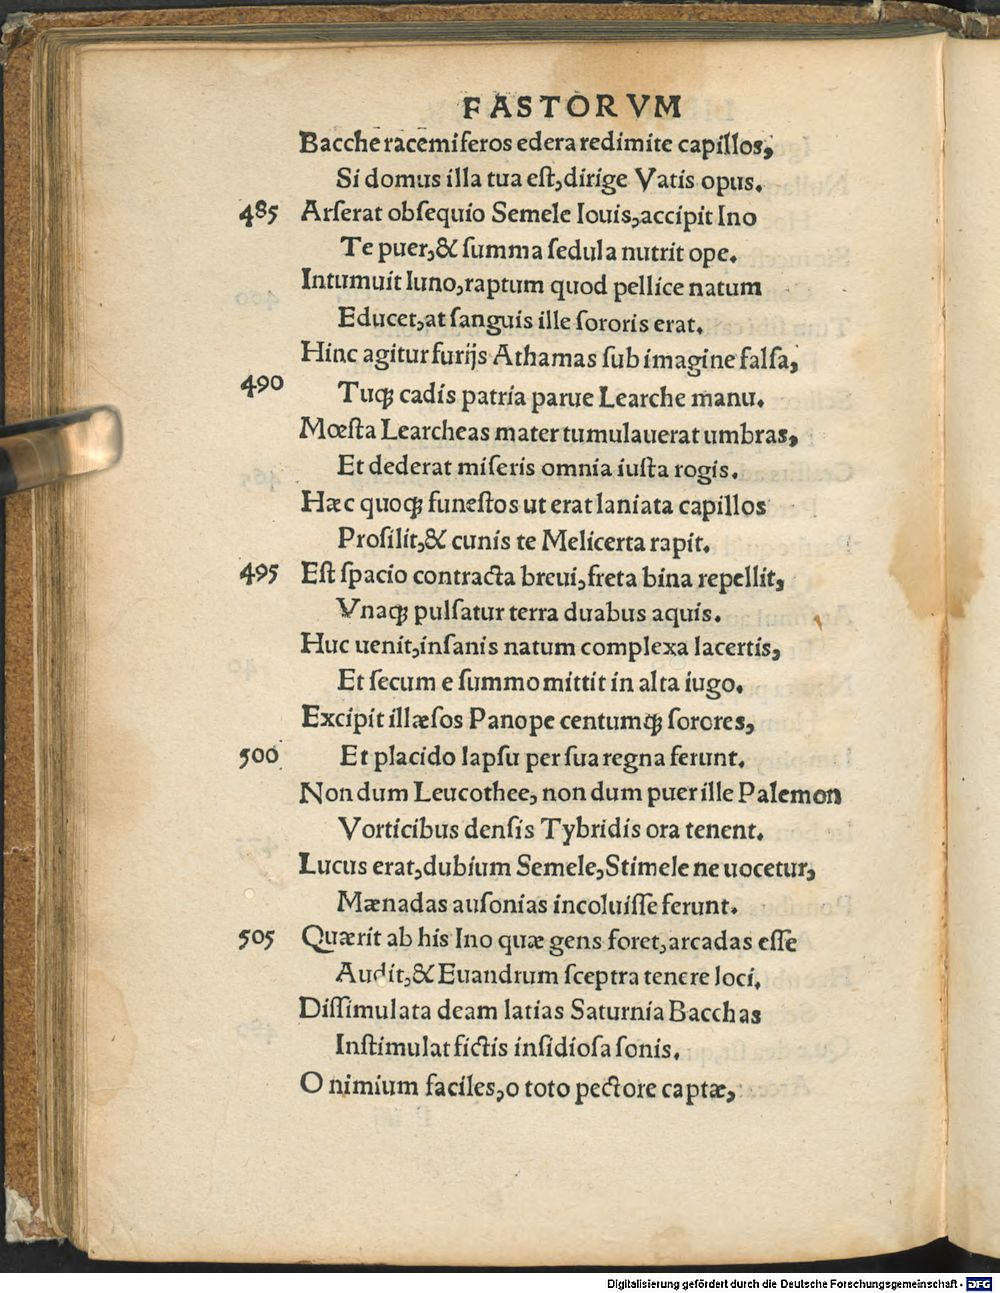 FASTORVM
Bacche racemiferos edera redimite capillos,
Si domus illa tua est, dirige Vatis opus.
485 Arserat obsequio Semele Iouis, accipit Ino
Te puer, & summa sedula nutrit ope.
Intumuit Iuno, raptum quod pellice natum
Educet, at sanguis ille sororis erat.
Hinc agitur furijs Athamas sub imagine falsa,
490 Tuq; cadis patria parue Learche manu.
Mœsta Learcheas mater tumulauerat umbras,
Et dederat miseris omnia iusta rogis.
Hæc quoq; funestos ut erat laniata capillos
Prosilit, & cunis te Melicerta rapit.
495 Est spacio contracta breui, freta bina repellit,
Vnaq; pulsatur terra duabus aquis.
Huc uenit, insanis natum complexa lacertis,
Et secum e summo mittit in alta iugo.
Excipit illæsos Panope centumq; sorores,
500 Et placido lapsu per sua regna ferunt.
Non dum Leucothee, non dum puer ille Palemon
Vorticibus densis Tybridis ora tenent.
Lucus erat, dubium Semele, Stimele ne uocetur,
Mænadas ausonias incoluisse ferunt.
505 Quærit ab his Ino quæ gens foret, arcadas esse
Audit, & Euandrum sceptra tenere loci.
Dissimulata deam latias Saturnia Bacchas
Instimulat fictis insidiosa sonis.
O nimium faciles, o toto pectore captæ,
Digitalisierung gefördert durch die Deutsche Forschungsgemeinschaft - DFG